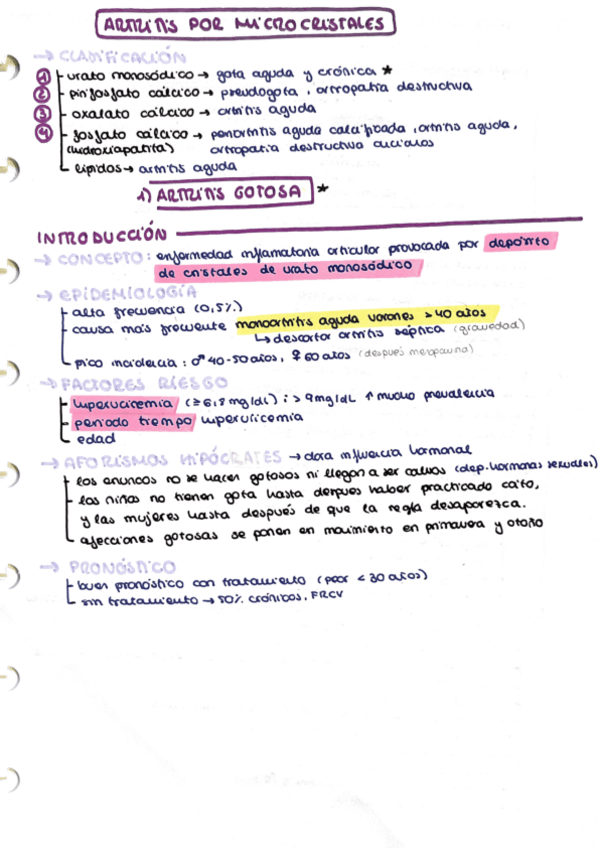 ARTRITIS POR MICROCRISTALES
→ CLASIFICACIÓN
1 urato monosódico → gota aguda y crónica *
2 pirifosfato cálcico → pseudogota, artropatía destructiva
3 oxalato cálcico → artritis aguda
4 fosfato cálcico → periartritis aguda calcificada, artritis aguda,
(hidroxiapatita) artropatía destructiva ancianos
lípidos → artritis aguda
1) ARTRITIS GOTOSA *
INTRODUCCIÓN
→ CONCEPTO: enfermedad inflamatoria articular provocada por depósito
de cristales de urato monosódico
→ EPIDEMIOLOGÍA
alta frecuencia (0,5%)
causa más frecuente monoartritis aguda varones > 40 años
↳ descartar artritis séptica (gravedad)
pico incidencia: ♂ 40-50 años, ♀ 60 años (después menopausia)
→ FACTORES RIESGO
hiperuricemia (≥ 6,8 mg/dL): > 9mg/dL ↑ mucho prevalencia
periodo tiempo hiperuricemia
edad
→ AFORISMOS HIPÓCRATES → clara influencia hormonal
los eunucos no se hacen gotosos ni llegan a ser calvos (dep. hormonas sexuales)
las niñas no tienen gota hasta después haber practicado coito,
y las mujeres hasta después de que la regla desaparezca.
afecciones gotosas se ponen en movimiento en primavera y otoño
→ PRONÓSTICO
buen pronóstico con tratamiento (peor < 30 años)
sin tratamiento → 50% crónicos, FRCV